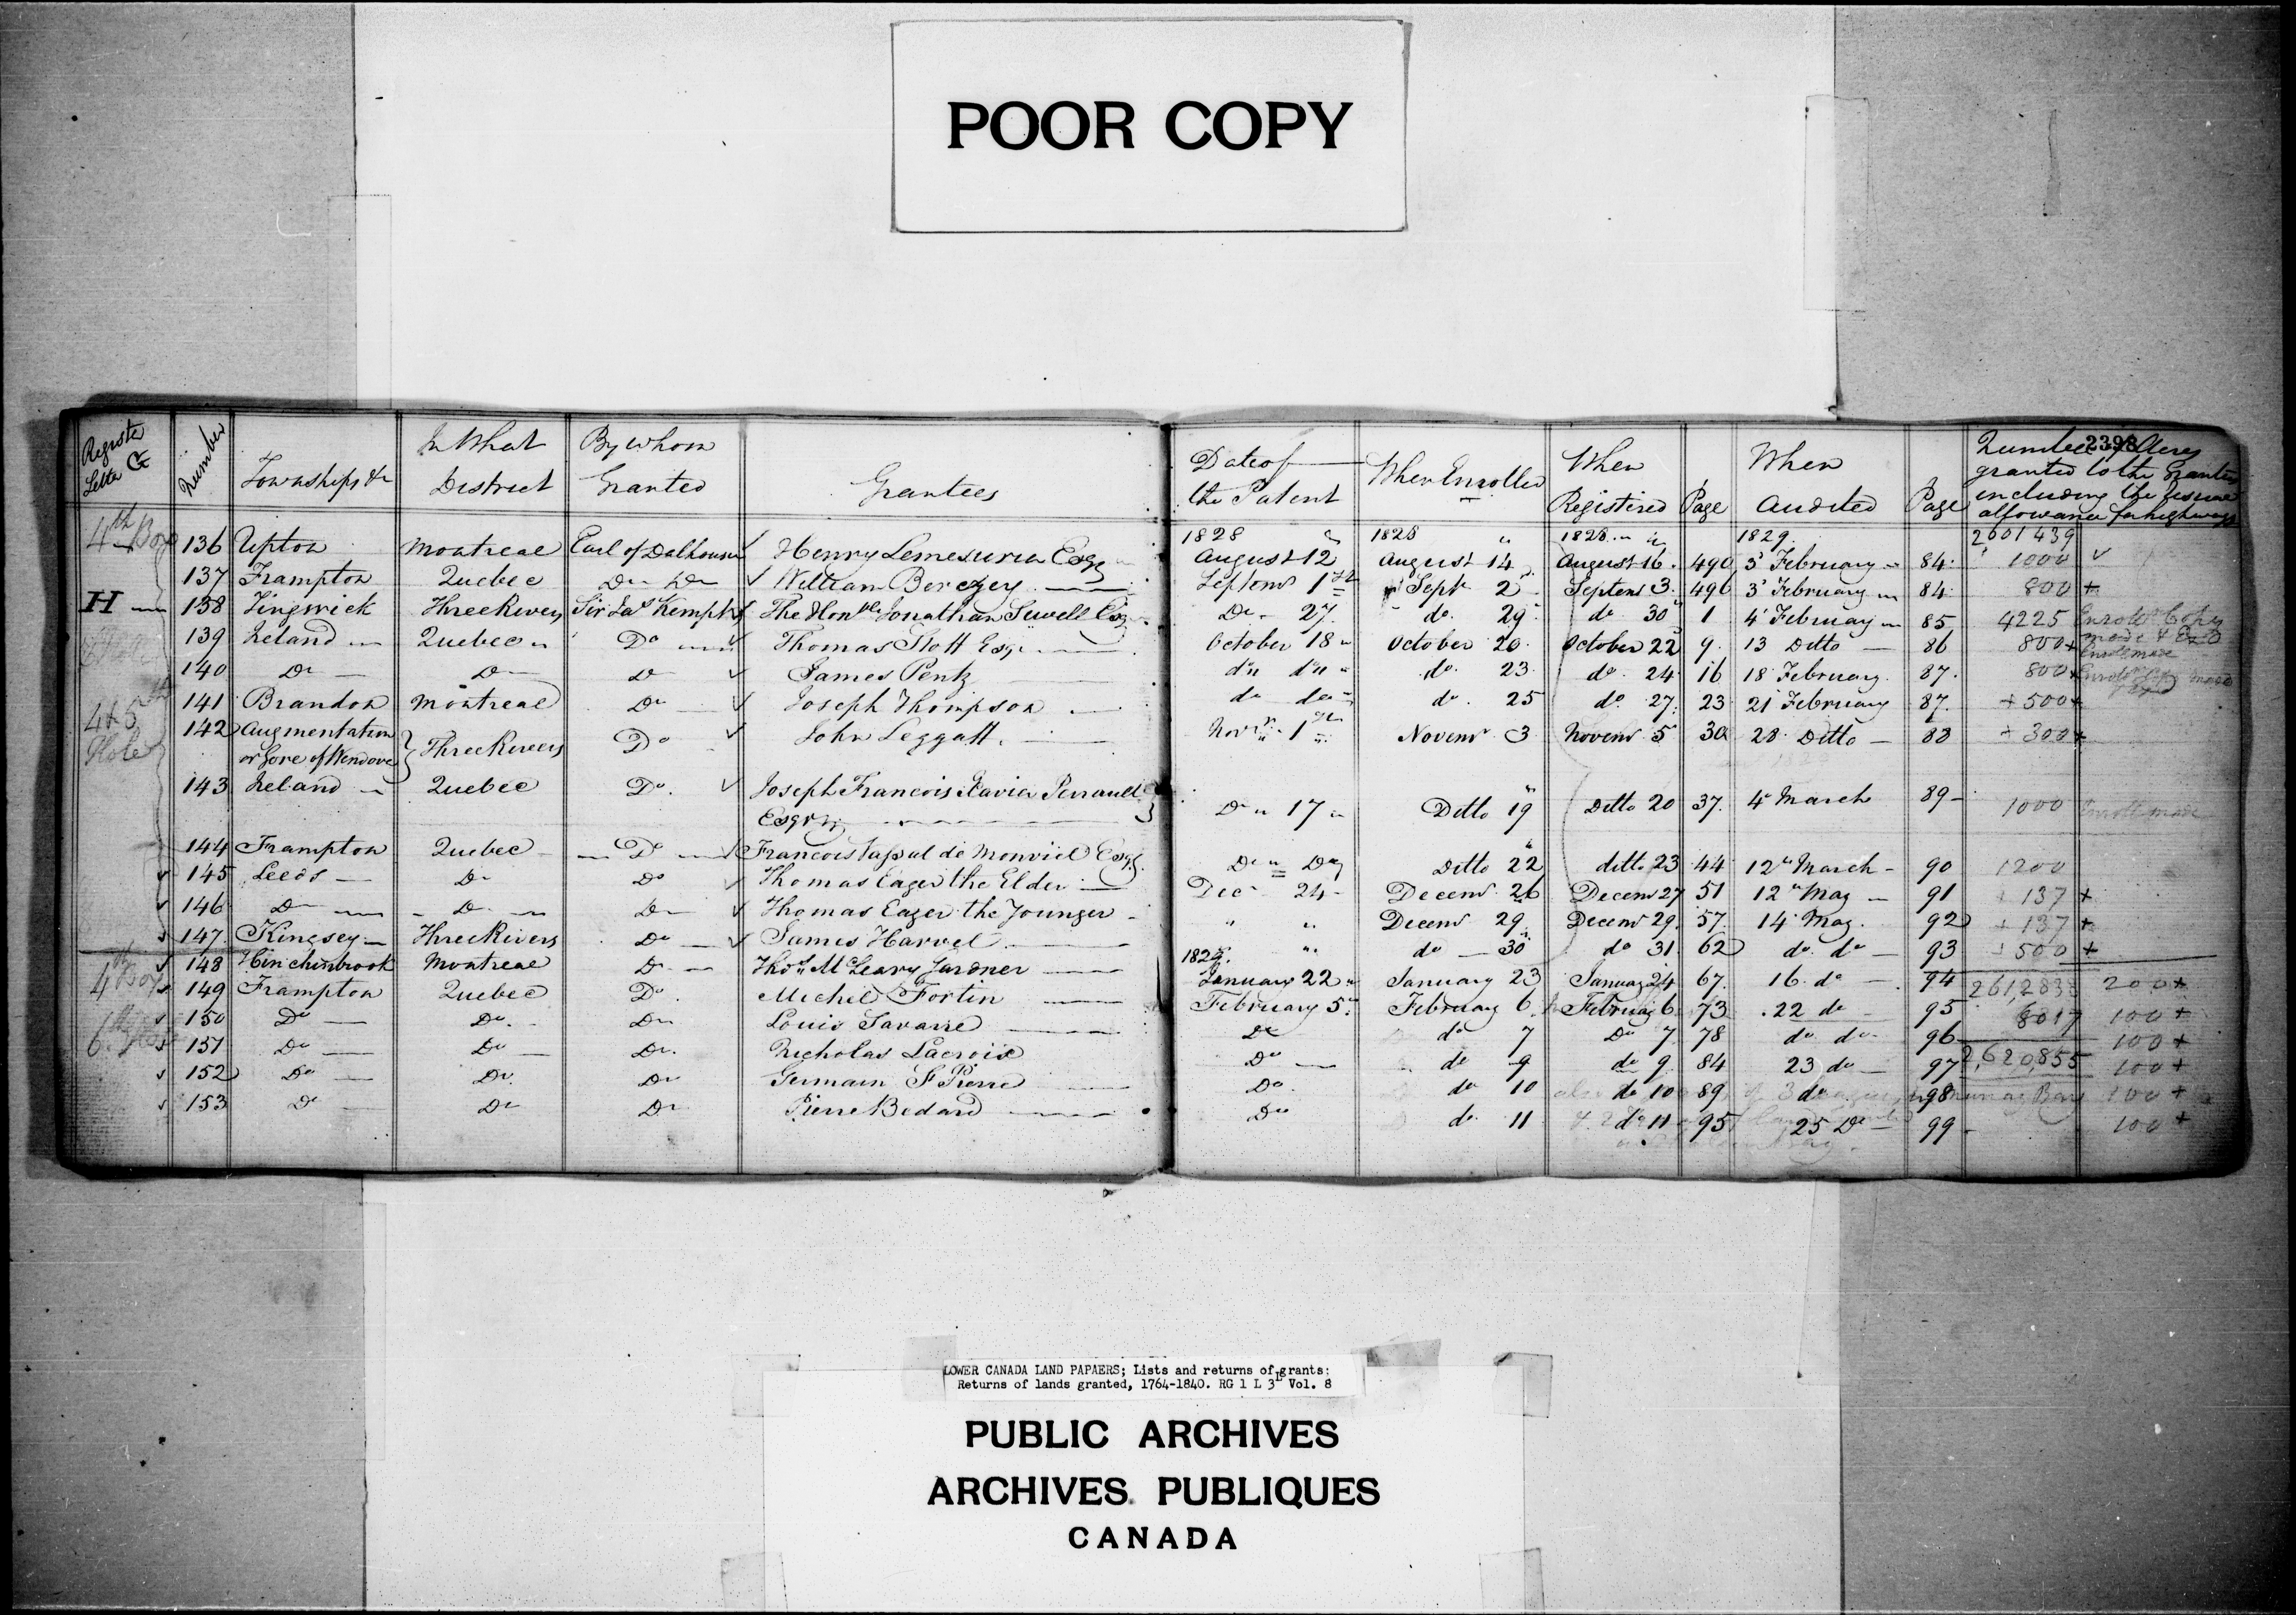 POOR COPY
Register Letter G
Number
Townships &c
In What District
By whom Granted
Grantees
Date of the Patent
When Enrolled
When Registered
Page
When Audited
Page
Number of Acres granted to the Grantees including the usual allowance for highways
2398
4th Box 136 Upton Montreal Earl of Dalhousie Henry Lemesurier Esqr 1828 August 12 1828 August 14 1828 August 16 490 1829 3 February 84 2601439 1000
137 Frampton Quebec Do Do William Berczey Septemr 1st Sept 2 Septem 3 496 3 February 84 800 +
H 138 Tingwick Three Rivers Sir Jas Kempt The Honble Jonathan Sewell Esq Do 27 do 29 do 30 1 4 February 85 4225 Enrolt Copy made & Exd
139 Ireland Quebec Do Thomas Stott Esqr October 18 October 20 October 22 9 13 Ditto 86 800 + Enrolt made
140 Do Do Do James Pentz do do do 23 do 24 16 18 February 87 800 + Enrolt Copy made
141 Brandon Montreal Do Joseph Thompson do do do 25 do 27 23 21 February 87 + 500 +
4 & 5th Hole 142 Augmentation or Gore of Wendover } Three Rivers Do John Leggatt Novr 1st Novemr 3 Novemr 5 30 28 Ditto 88 + 300 +
143 Ireland Quebec Do Joseph Francois Xavier Perrault Esqr } Do 17 Ditto 19 Ditto 20 37 4 March 89 1000 Enrolt made
144 Frampton Quebec Do Francois Vassal de Monviel Esqr Do Do Ditto 22 ditto 23 44 12 March 90 1200
145 Leeds Do Do Thomas Eager the Elder Dec 24 Decemr 26 Decem 27 51 12 May 91 + 137 +
146 Do Do Do Thomas Eager the Younger " " Decemr 29 Decemr 29 57 14 May 92 + 137 +
147 Kingsey Three Rivers Do James Harvel " do 30 do 31 62 do do 93 + 500 +
4th Box 148 Hinchinbrook Montreal Do Thos McLeary Gardner 1829 January 22 January 23 January 24 67 16 do 94 2612838 200 +
149 Frampton Quebec Do Michel Fortin February 5 February 6 February 6 73 22 do 95 8017 100 +
6th 150 Do Do Do Louis Savarie Do do 7 Do 7 78 do do 96 100 +
151 Do Do Do Nicholas Lacroix Do do 9 do 9 84 23 do 97 2,620,855 100 +
152 Do Do Do Germain St Pierre Do do 10 do 10 89 do 98 100 +
153 Do Do Do Pierre Bedard Do do 11 do 11 95 25 Do 99 100 +
LOWER CANADA LAND PAPAERS; Lists and returns of grants:
Returns of lands granted, 1764-1840. RG 1 L 3L Vol. 8
PUBLIC ARCHIVES
ARCHIVES PUBLIQUES
CANADA